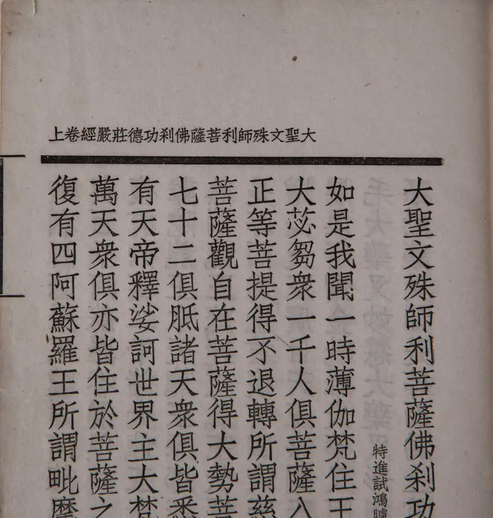 大聖文殊師利菩薩佛刹功德莊嚴經卷上
大聖文殊師利菩薩佛刹功
特進試鴻臚
如是我聞一時薄伽梵住王
大苾芻衆一千人俱菩薩八
正等菩提得不退轉所謂慈
菩薩觀自在菩薩得大勢菩
七十二俱胝諸天衆俱皆悉
有天帝釋娑訶世界主大梵
萬天衆俱亦皆住於菩薩之
復有四阿蘇羅王所謂毗摩